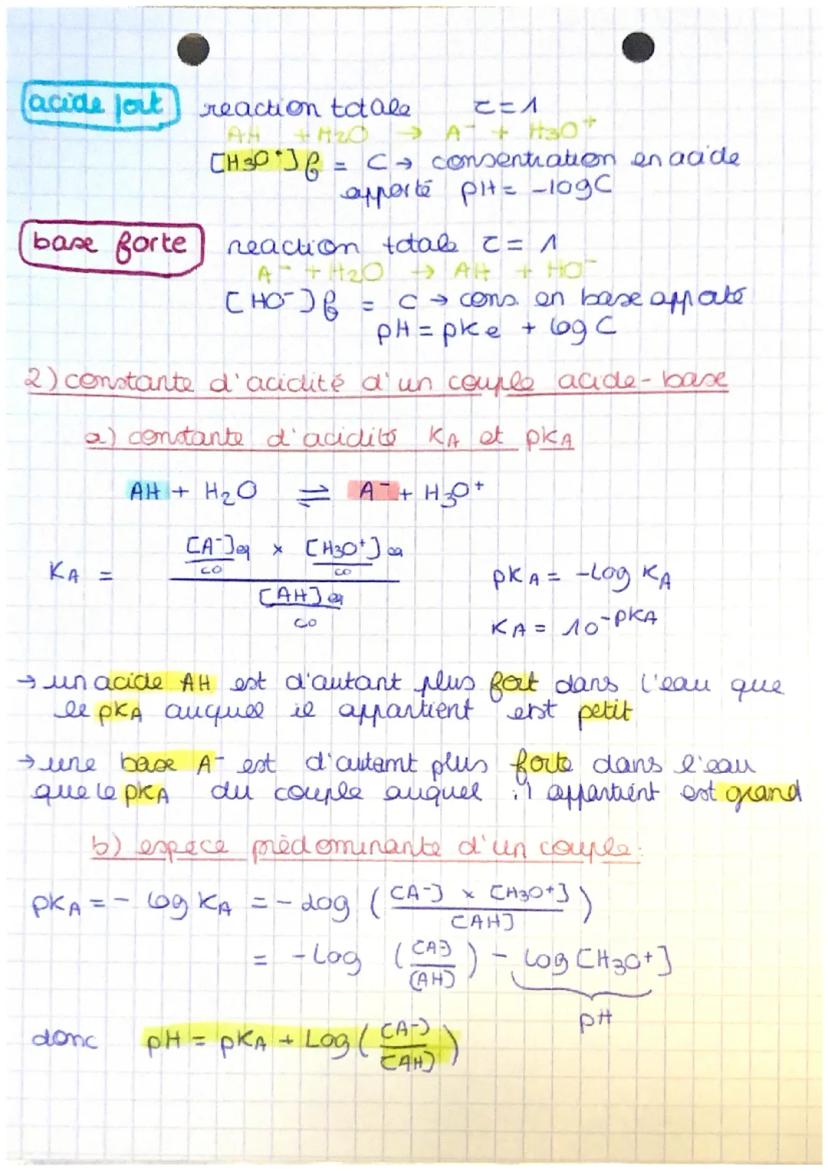 acide fort reaction totale τ = 1
AH + H2O → A⁻ + H3O⁺
[H3O⁺]f = C → consentration en acide
apporté pH = -log C
base forte reaction totale τ = 1
A⁻ + H2O → AH + HO⁻
[HO⁻]f = C → cons en base apporté
pH = pKe + log C
2) constante d'acidité d'un couple acide-base
a) constante d'acidité KA et pKA
AH + H2O ⇌ A⁻ + H3O⁺
KA = ([A⁻]eq/C0 × [H3O⁺]eq/C0) / ([AH]eq/C0)
pKA = -Log KA
KA = 10^-pKA
→ un acide AH est d'autant plus fort dans l'eau que
le pKA auquel il appartient est petit
→ une base A⁻ est d'autant plus forte dans l'eau
que le pKA du couple auquel il appartient est grand
b) espece prédominante d'un couple:
pKA = - log KA = - log ([A⁻] × [H3O⁺] / [AH])
= - Log ([A⁻]/[AH]) - Log [H3O⁺]
pH
donc pH = pKA + Log ([A⁻]/[AH])